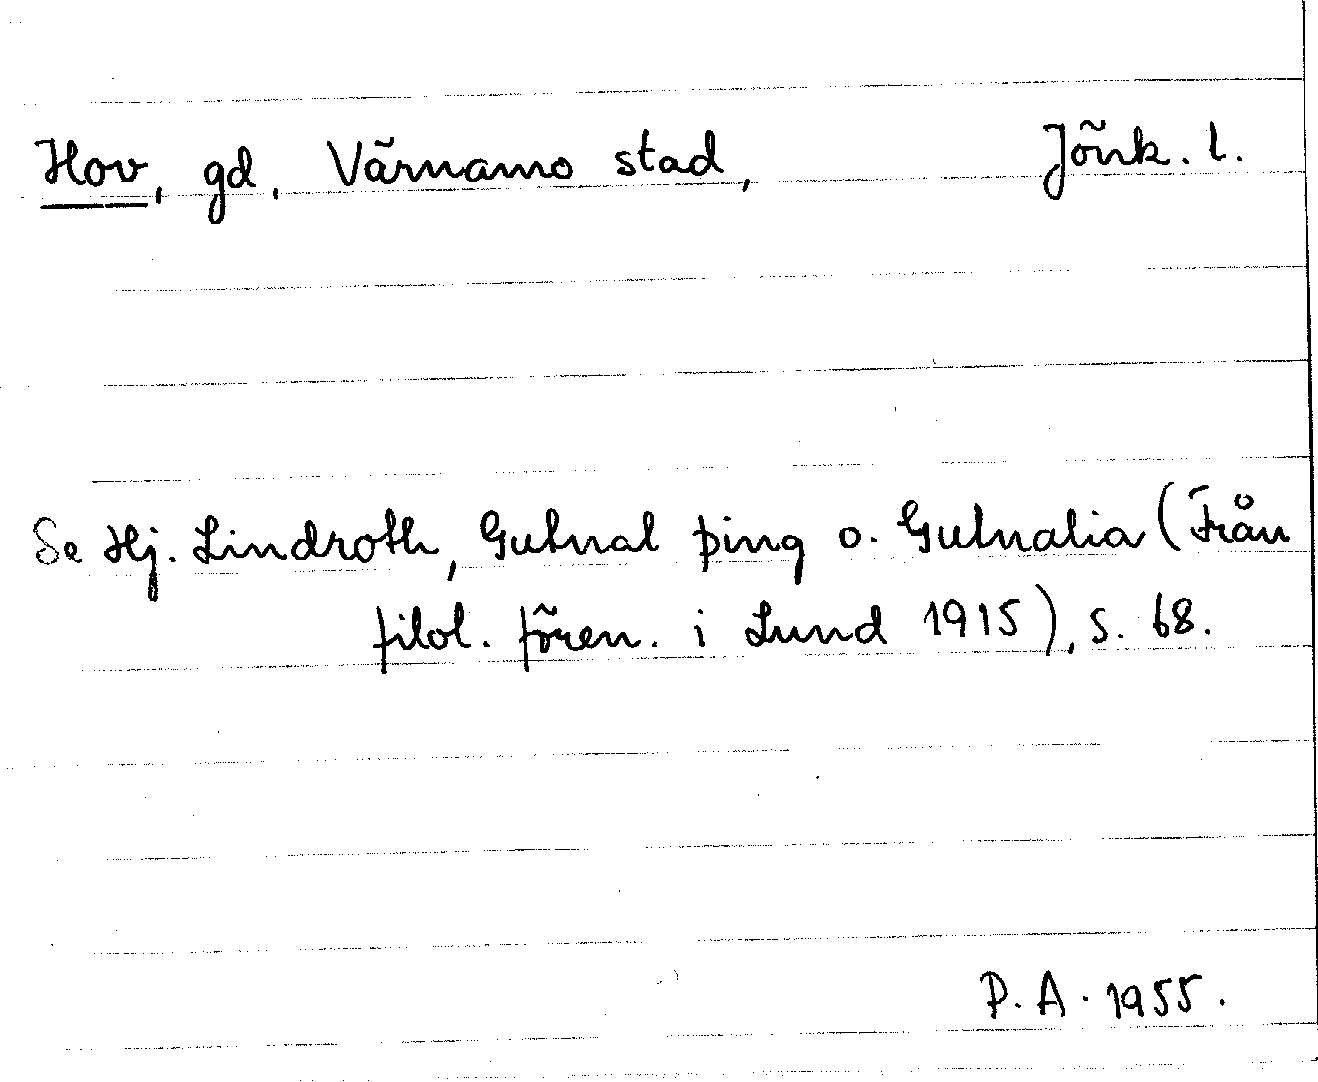 Hov, gd, Värnamo stad, Jönk. l.
Se Hj. Lindroth, Gutnal þing o. Gutnalia (Från
filol. fören. i Lund 1915), s. 68.
P. A. 1955.